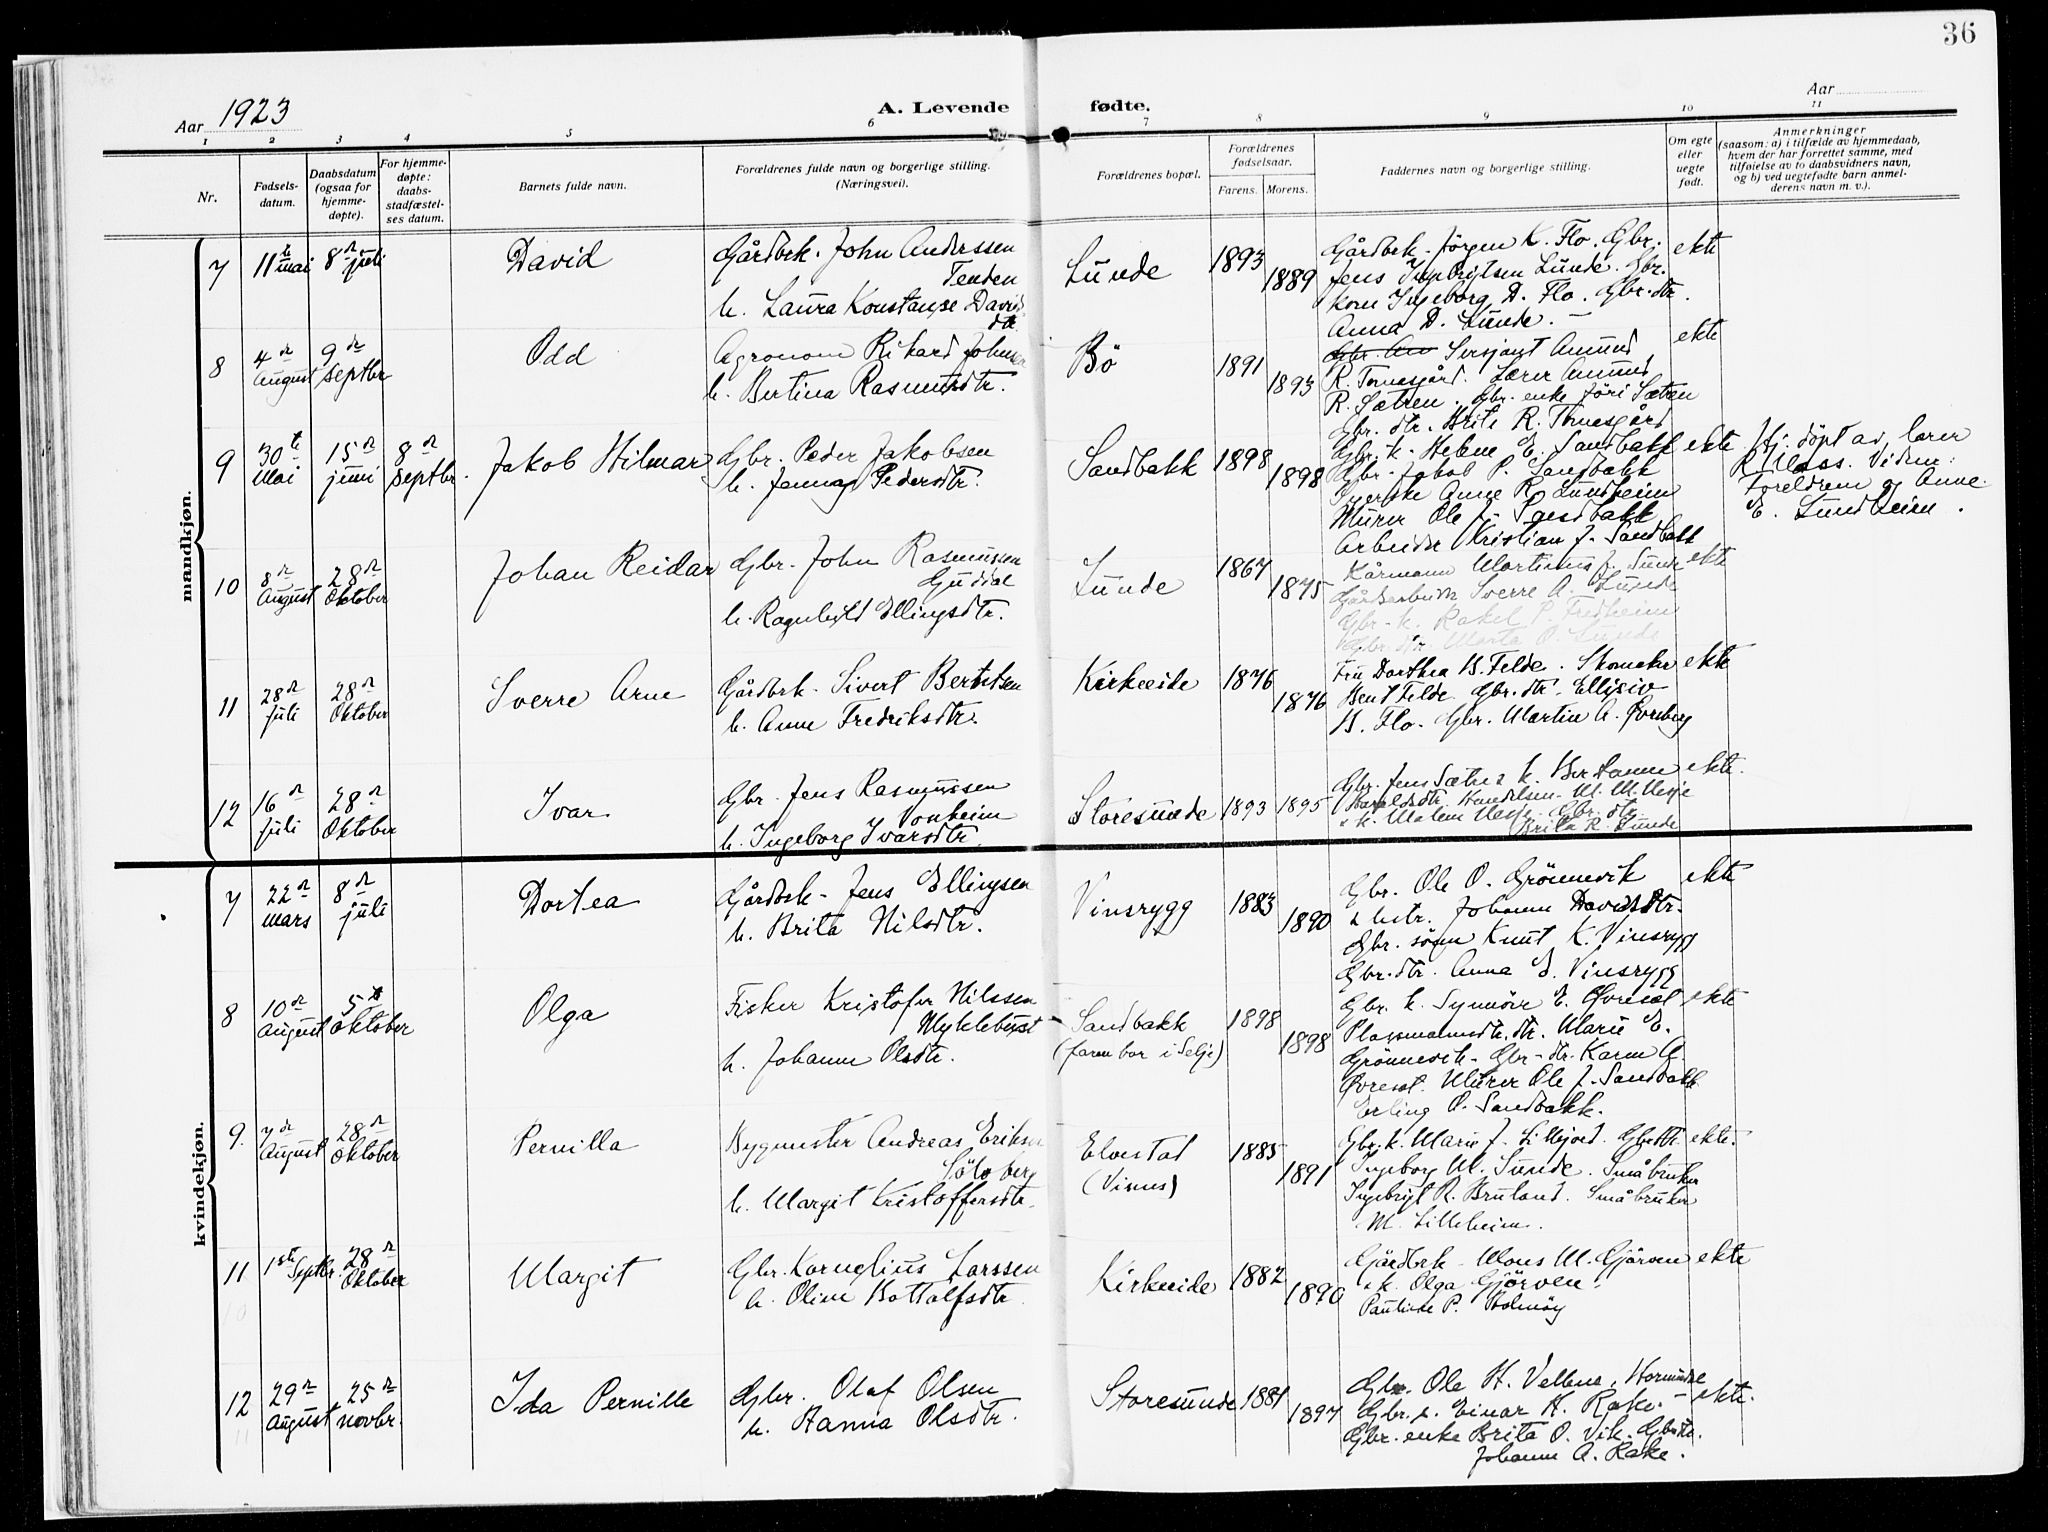 36
Aar 1923
A. Levende fødte.
Aar
1 2 3 4 5 6 7 8 9 10 11
Nr.
Fødsels-
datum.
Daabsdatum
(ogsaa for
hjemme-
døpte).
For hjemme-
døpte:
daabs-
stadfæstel-
ses datum.
Barnets fulde navn.
Forældrenes fulde navn og borgerlige stilling.
(Næringsvei).
Forældrenes bopæl.
Forældrenes
fødselsaar.
Farens. Morens.
Faddernes navn og borgerlige stilling.
Om egte
eller
uegte
født.
Anmerkninger
(saasom: a) i tilfælde av hjemmedaab,
hvem der har forrettet samme, med
tilføielse av to daabsvidners navn,
og b) ved uegtefødte barn anmel-
derens navn m. v.).
mandkjøn.
7 11te mai 8de juli David
Gårdbrk. John Anderssen
Tenden
h. Laura Konstanse Davids
dtr.
Lunde 1893 1889
Gårdbrk. Jörgen K. Flo. Gbr.
Jens Ingebrigtsen Lunde. Gbr.
kone Ingeborg D. Flo. Gbr. dtr.
Anna D. Lunde. –
ekte
8 4de August 9de septbr Odd
Agronom Rikard Johnsen
h. Bertina Rasmusdtr.
Bö 1891 1893
Sersjant Amund
R. Tomasgård. Lærer Amund
R. Sætren. Gbr. enke Jöri Sætren
Gbr. dtr. Brite R. Tomasgård
ekte
9 30te Mai 15de juni 8de septbr. Jakob Hilmar
Gbr. Peder Jakobsen
h. Jenny Pedersdtr.
Sandbakk 1898 1898
Gbr. k. Helene E. Sandbakk
Gbr. Jakob P. Sandbakk
Syerske Anne R. Lundheim
Murer Ole J. Sandbakk
Arbeider Kristian J. Sandbakk
ekte
Hj. döpt av lærer
R. Mass. Vidner:
Foreldrene og Anne
E. Lundheim.
10 8de August 28de Oktober Johan Reidar
Gbr. John Rasmussen
Guddal
h. Ragnhild Ellingsdtr.
Lunde 1867 1875
Kårmann Martinus J. Lunde
Gårdsarbeider Sverre A. Lunde
Gbr. k. Rakel P. Fredheim
Gbr. dtr. Marta O. Lunde
ekte
11 28de juli 28de Oktober Sverre Arne
Gårdbrk. Sivert Berntsen
h. Anne Fredriksdtr.
Kirkeeide 1876 1876
Fru Dorthea B. Felde. Skomaker
Bent Felde. Gbr. dtr. Ellisiv
B. Flo. Gbr. Martin A. Övreberg
ekte
12 16de juli 28de Oktober Ivar
Gbr. Jens Rasmussen
Vonheim
h. Ingeborg Ivarsdtr.
Storesunde 1893 1895
Gbr. Jens Sætre & k.
Haraldsdtr.
Brita R. Lunde
ekte.
kvindekjøn.
7 22de mars 8de juli Dortea
Gårdbrk. Jens Ellingsen
h. Brita Nilsdtr.
Vinsrygg 1883 1890
Gbr. Ole O. Grönnevik
& hstr. Johanne Davidsdtr.
Gbr. sönn Knut K. Vinsrygg
Gbr. dtr. Anna E. Vinsrygg
ekte
8 10de August 5te Oktober Olga
Fisker Kristofer Nilssen
Myklebust
h. Johanne Olsdtr.
Sandbakk
(faren bor i Selje)
1898 1898
Gbr. k. Synnöve E. Övreset
Plassmannsdtr. Marie E.
Grönnevik. Gbr. dtr. Karen A.
Övreset. Murer Ole J. Sandbakk
Erling O. Sandbakk.
ekte
9. 7de August 28de Oktober Pernilla
Bygmester Andreas Eriksen
Sölvberg
h. Margit Kristoffersdtr.
Elvestad
(Vinnes)
1885 1891
Gbr. k. Marie J. Lillejord. Gbrdtr.
Ingeborg M. Lunde. Småbruker
Ingebrigt R. Bruland. Småbruker
M. Lilleheim.
ekte.
11 1ste Septbr. 28de Oktober Margit
10
Gbr. Kornelius Larssen
h. Oline Bottolfsdtr.
Kirkeeide 1882 1890
Gårdbrk. Mons M. Gjörven
& k. Olga Gjörven.
Pauline P. Holmöy
ekte
12 29de August 25de novbr. Ida Pernille
11
Gbr. Olaf Olsen
h. Hanna Olsdtr.
Storesunde 1881 1897
Gbr. Ole H. Vellene, Hornindal
Gbr. s. Einar H. Rake. –
Gbr. enke Brita O. Vik. Gbrdtr.
Johanne A. Rake.
ekte.